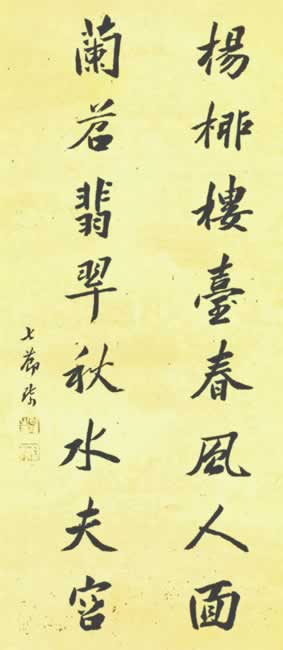 楊柳樓臺春風人面
蘭苕翡翠秋水夫容
七薌琦